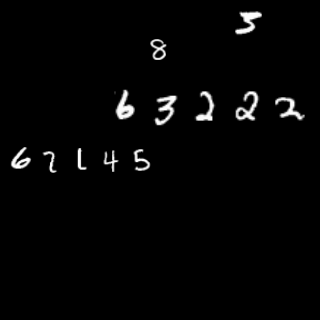 5
8
63222
67145